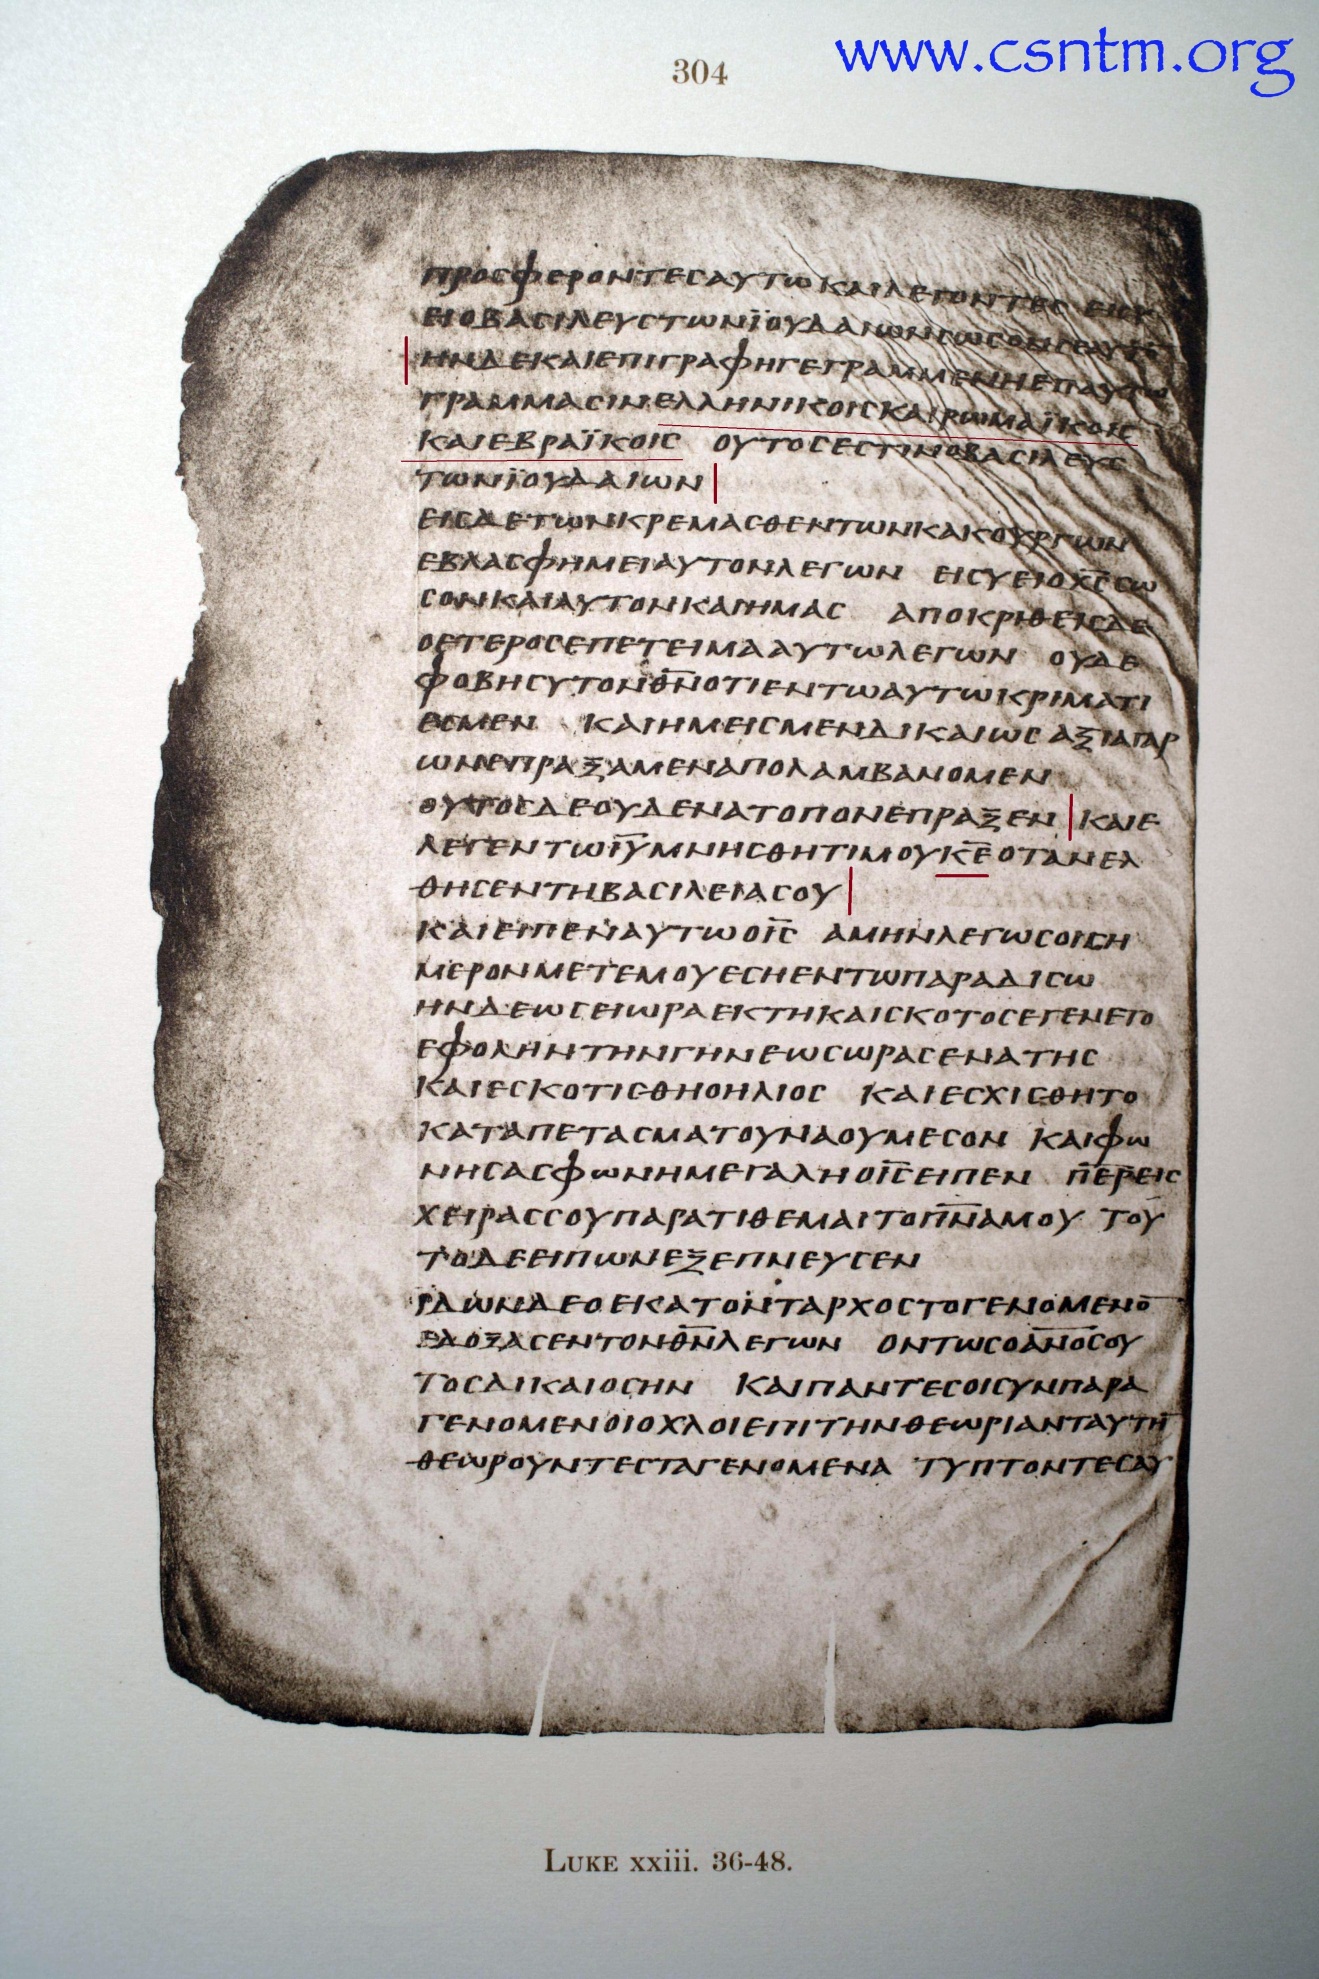 www.csntm.org
304
ΠΡΟCΦΕΡΟΝΤΕCΑΥΤΩΚΑΙΛΕΓΟΝΤΕC ΕΙCΥ
ΕΙΟΒΑCΙΛΕΥCΤΩΝΪΟΥΔΑΙΩΝCΩCΟΝCΕΑΥΤΟ
ΗΝΔΕΚΑΙΕΠΙΓΡΑΦΗΓΕΓΡΑΜΜΕΝΗΕΠΑΥΤΩ
ΓΡΑΜΜΑCΙΝΕΛΛΗΝΙΚΟΙCΚΑΙΡΩΜΑΪΚΟΙC
ΚΑΙΕΒΡΑΪΚΟΙC ΟΥΤΟCΕCΤΙΝΟΒΑCΙΛΕΥC
ΤΩΝΪΟΥΔΑΙΩΝ
ΕΙCΔΕΤΩΝΚΡΕΜΑCΘΕΝΤΩΝΚΑΚΟΥΡΓΩΝ
ΕΒΛΑCΦΗΜΕΙΑΥΤΟΝΛΕΓΩΝ ΕΙCΥΕΙΟΧ̅C̅CΩ
CΟΝΚΑΙΑΥΤΟΝΚΑΙΗΜΑC ΑΠΟΚΡΙΘΕΙCΔΕ
ΟΕΤΕΡΟCΕΠΕΤΕΙΜΑΑΥΤΩΛΕΓΩΝ ΟΥΔΕ
ΦΟΒΗCΥΤΟΝΘ̅Ν̅ΟΤΙΕΝΤΩΑΥΤΩΚΡΙΜΑΤΙ
ΕCΜΕΝ ΚΑΙΗΜΕΙCΜΕΝΔΙΚΑΙΩCΑΞΙΑΓΑΡ
ΩΝΕΠΡΑΞΑΜΕΝΑΠΟΛΑΜΒΑΝΟΜΕΝ
ΟΥΤΟCΔΕΟΥΔΕΝΑΤΟΠΟΝΕΠΡΑΞΕΝ ΚΑΙΕ
ΛΕΓΕΝΤΩΙ̅Υ̅ΜΝΗCΘΗΤΙΜΟΥΚ̅Ε̅ΟΤΑΝΕΛ
ΘΗCΕΝΤΗΒΑCΙΛΕΙΑCΟΥ
ΚΑΙΕΙΠΕΝΑΥΤΩΟΙ̅C̅ ΑΜΗΝΛΕΓΩCΟΙCΗ
ΜΕΡΟΝΜΕΤΕΜΟΥΕCΗΕΝΤΩΠΑΡΑΔΙCΩ
ΗΝΔΕΩCΕΙΩΡΑΕΚΤΗΚΑΙCΚΟΤΟCΕΓΕΝΕΤΟ
ΕΦΟΛΗΝΤΗΝΓΗΝΕΩCΩΡΑCΕΝΑΤΗC
ΚΑΙΕCΚΟΤΙCΘΗΟΗΛΙΟC ΚΑΙΕCΧΙCΘΗΤΟ
ΚΑΤΑΠΕΤΑCΜΑΤΟΥΝΑΟΥΜΕCΟΝ ΚΑΙΦΩ
ΝΗCΑCΦΩΝΗΜΕΓΑΛΗΟΙ̅C̅ΕΙΠΕΝ Π̅Ε̅Ρ̅ΕΙC
ΧΕΙΡΑCCΟΥΠΑΡΑΤΙΘΕΜΑΙΤΟΠ̅Ν̅Α̅ΜΟΥ ΤΟΥ
ΤΟΔΕΕΙΠΩΝΕΞΕΠΝΕΥCΕΝ
ΪΔΩΝΔΕΟΕΚΑΤΟΝΤΑΡΧΟCΤΟΓΕΝΟΜΕΝΟ̅
ΕΔΟΞΑCΕΝΤΟΝΘ̅Ν̅ΛΕΓΩΝ ΟΝΤΩCΟΑ̅Ν̅Ο̅C̅ΟΥ
ΤΟCΔΙΚΑΙΟCΗΝ ΚΑΙΠΑΝΤΕCΟΙCΥΝΠΑΡΑ
ΓΕΝΟΜΕΝΟΙΟΧΛΟΙΕΠΙΤΗΝΘΕΩΡΙΑΝΤΑΥΤΗ̅
ΘΕΩΡΟΥΝΤΕCΤΑΓΕΝΟΜΕΝΑ ΤΥΠΤΟΝΤΕCΑΥ
LUKE xxiii. 36-48.